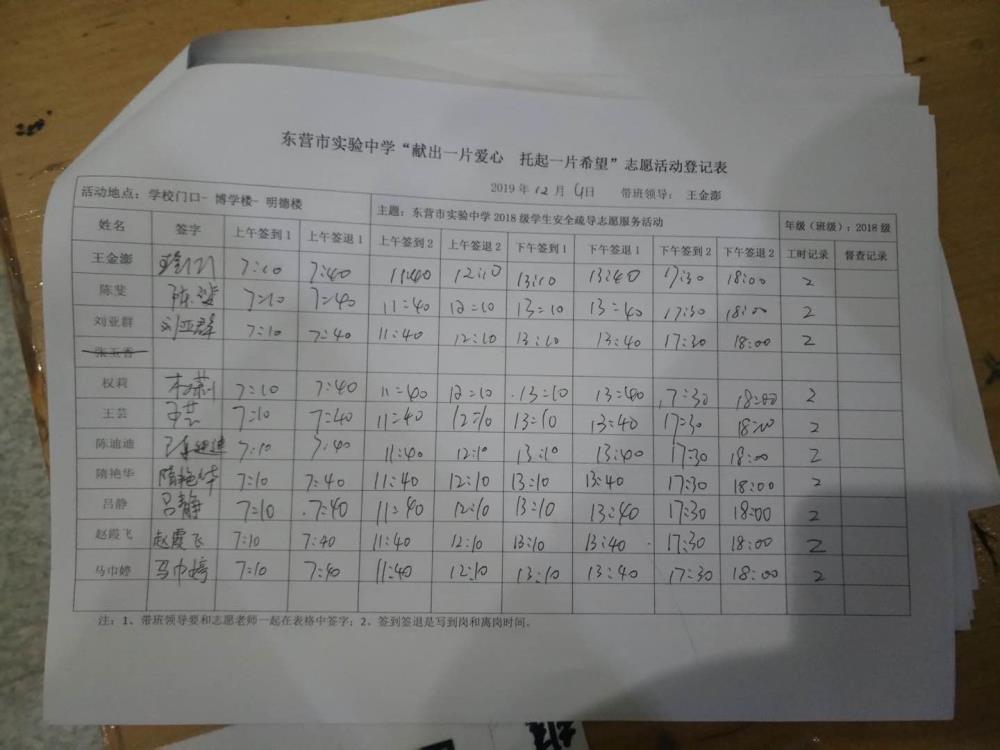 东营市实验中学“献出一片爱心 托起一片希望”志愿活动登记表
2019 年 12 月 4日 带班领导： 王金澎
活动地点：学校门口- 博学楼- 明德楼 主题：东营市实验中学 2018 级学生安全疏导志愿服务活动 年级（班级）：2018 级
姓名 签字 上午签到 1 上午签退 1 上午签到 2 上午签退 2 下午签到 1 下午签退 1 下午签到 2 下午签退 2 工时记录 督查记录
王金澎 7:10 7:40 11:40 12:10 13:10 13:40 17:30 18:00 2
陈斐 陈斐 7:10 7:40 11:40 12:10 13:10 13:40 17:30 18:00 2
刘亚群 刘亚群 7:10 7:40 11:40 12:10 13:10 13:40 17:30 18:00 2
张玉香
权莉 权莉 7:10 7:40 11:40 12:10 13:10 13:40 17:30 18:00 2
王芸 王芸 7:10 7:40 11:40 12:10 13:10 13:40 17:30 18:00 2
陈迪迪 陈迪迪 7:10 7:40 11:40 12:10 13:10 13:40 17:30 18:00 2
隋艳华 隋艳华 7:10 7:40 11:40 12:10 13:10 13:40 17:30 18:00 2
吕静 吕静 7:10 7:40 11:40 12:10 13:10 13:40 17:30 18:00 2
赵霞飞 赵霞飞 7:10 7:40 11:40 12:10 13:10 13:40 17:30 18:00 2
马巾婷 马巾婷 7:10 7:40 11:40 12:10 13:10 13:40 17:30 18:00 2
注：1、带班领导要和志愿老师一起在表格中签字；2、签到签退是写到岗和离岗时间。